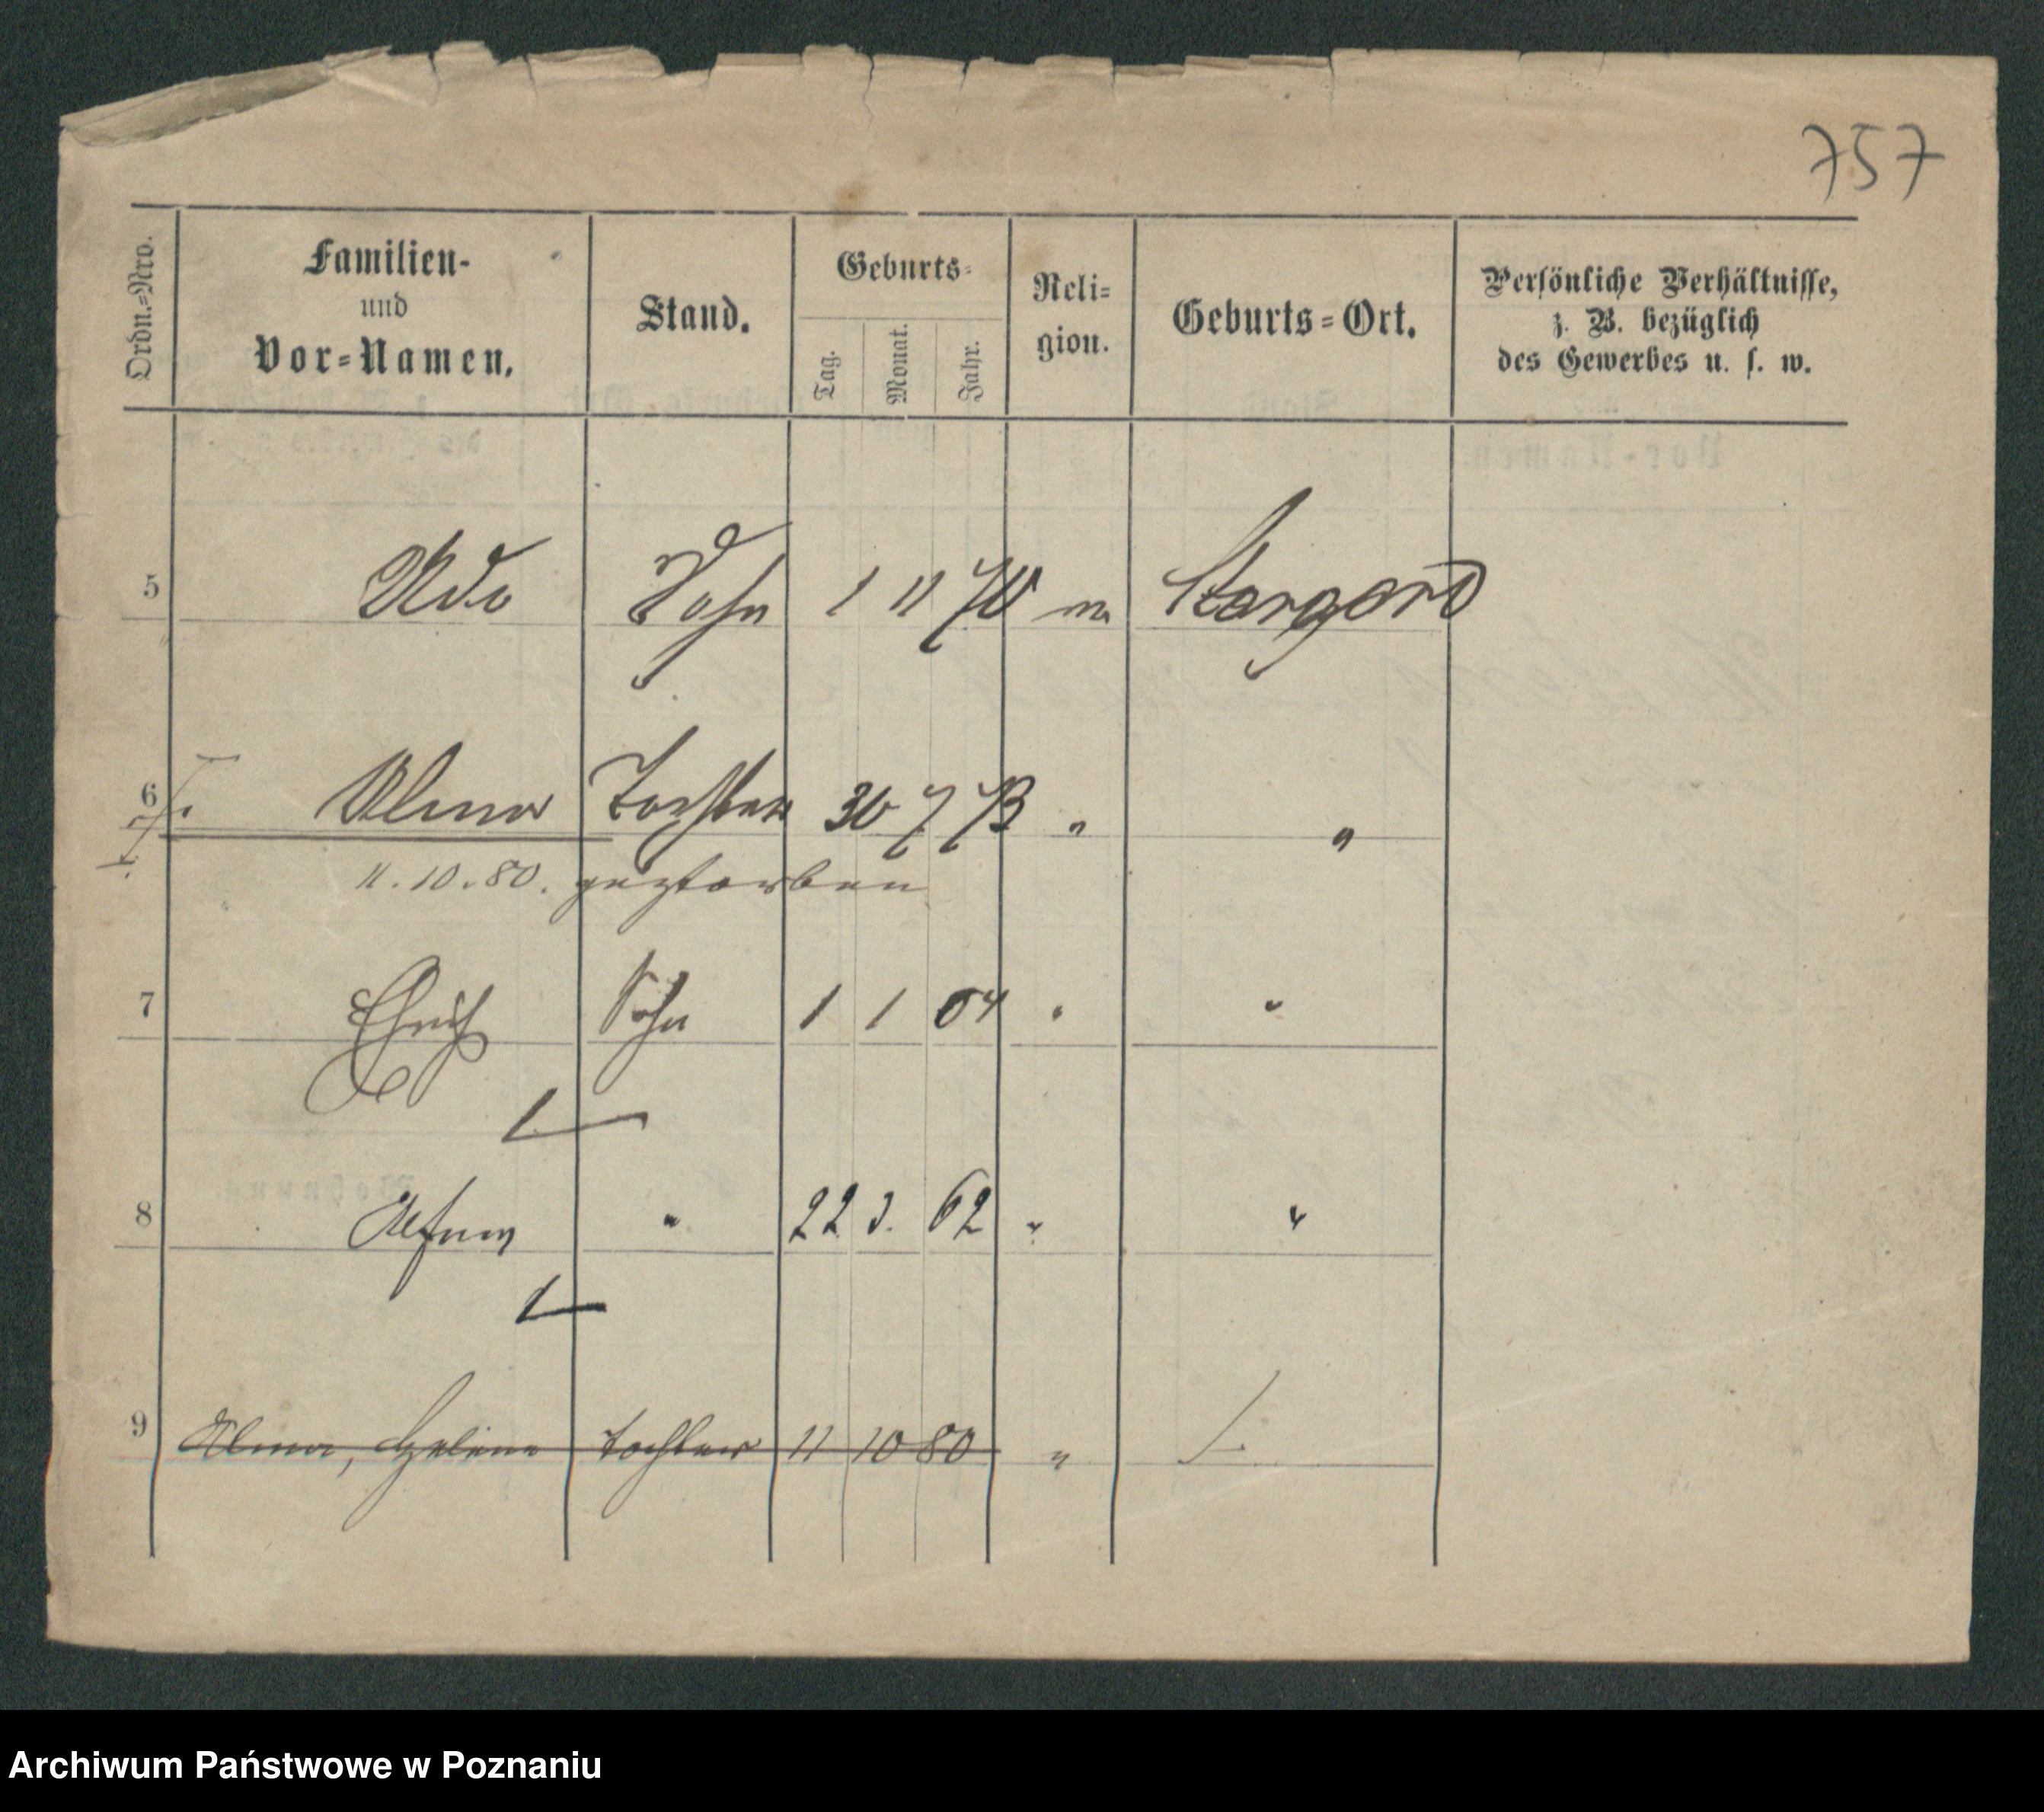 757
Ordn.=Nro. Familien- und Vor=Namen. Stand. Geburts- Tag. Monat. Jahr. Reli=gion. Geburts=Ort. Persönliche Verhältnisse, z. B. bezüglich des Gewerbes u. s. w.
5 Udo Sohn 1 11 70 Stargard
6 Alma Tochter 30 7 73 " "
11.10.80. gestorben
7 Sohn 1 1 " "
8 " 22 3. 62 " "
9 Alma, Helene Tochter 11 10 80 "
Archiwum Państwowe w Poznaniu